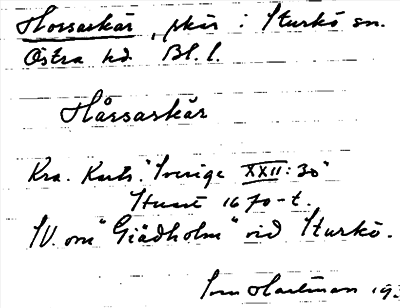 Horsaskär, skär i Sturkö sn.
Östra hd. Bl. l.
Hårsaskär
Kra. Kart. "Sverige XXII:30"
Senast 1670-t.
SV. om "Giädholm" vid Sturkö.
Sven Hartman 193